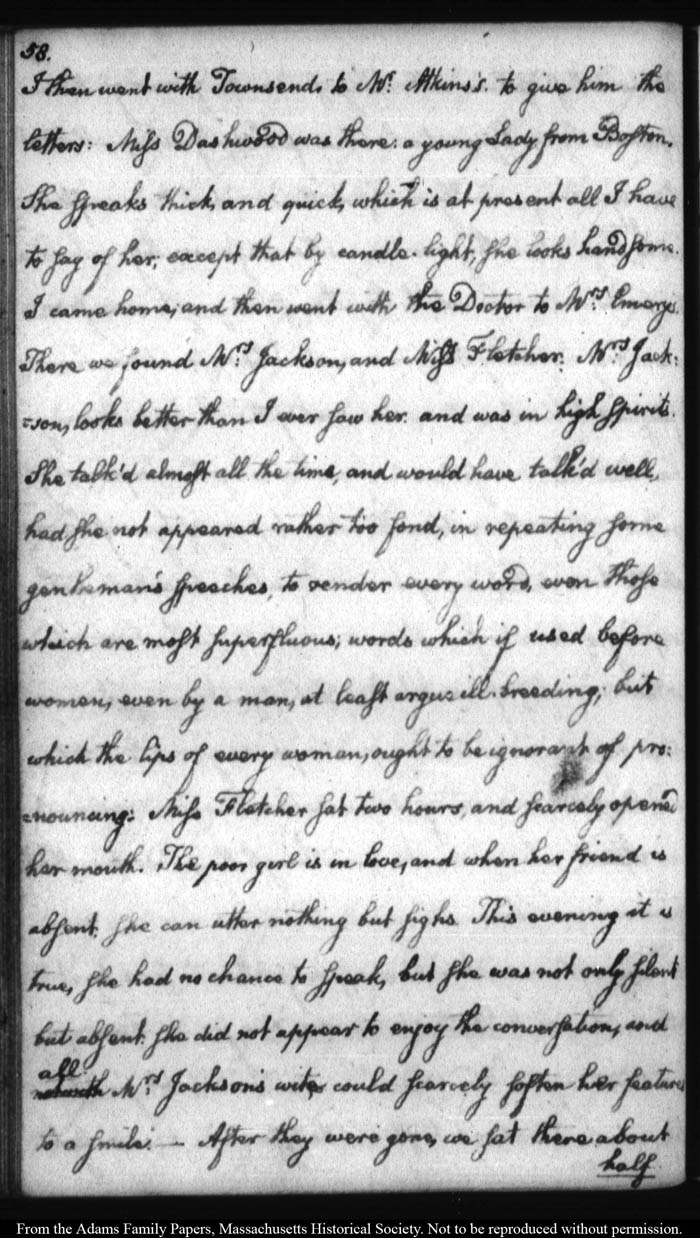 58.
I then went with Townsend, to Mr. Atkins's. to give him the
letters: Miss Dashwood was there: a young Lady from Boston.
She speaks thick, and quick, which is at present all I have
to say of her; except that by candle-light, she looks handsome.
I came home; and then went with the Doctor to Mrs. Emery's.
There we found Mrs. Jackson, and Miss Fletcher. Mrs. Jack:
=son, looks better than I ever saw her. and was in high spirits.
She talk'd almost all the time, and would have talk'd well,
had she not appeared rather too fond, in repeating some
gentleman's speeches, to render every word, even those
which are most superfluous; words which if used before
women, even by a man, at least argue ill-breeding; but
which the lips of every woman, ought to be ignorant of pro:
=nouncing: Miss Fletcher sat two hours, and scarcely opened
her mouth. The poor girl is in love, and when her friend is
absent: she can utter nothing but sighs. This evening it is
true, she had no chance to speak, but she was not only silent
but absent: she did not appear to enjoy the conversation, and
all
Mrs Jackson's wit, could scarcely soften her features
to a smile. — After they were gone, we sat there about
half
From the Adams Family Papers, Massachusetts Historical Society. Not to be reproduced without permission.